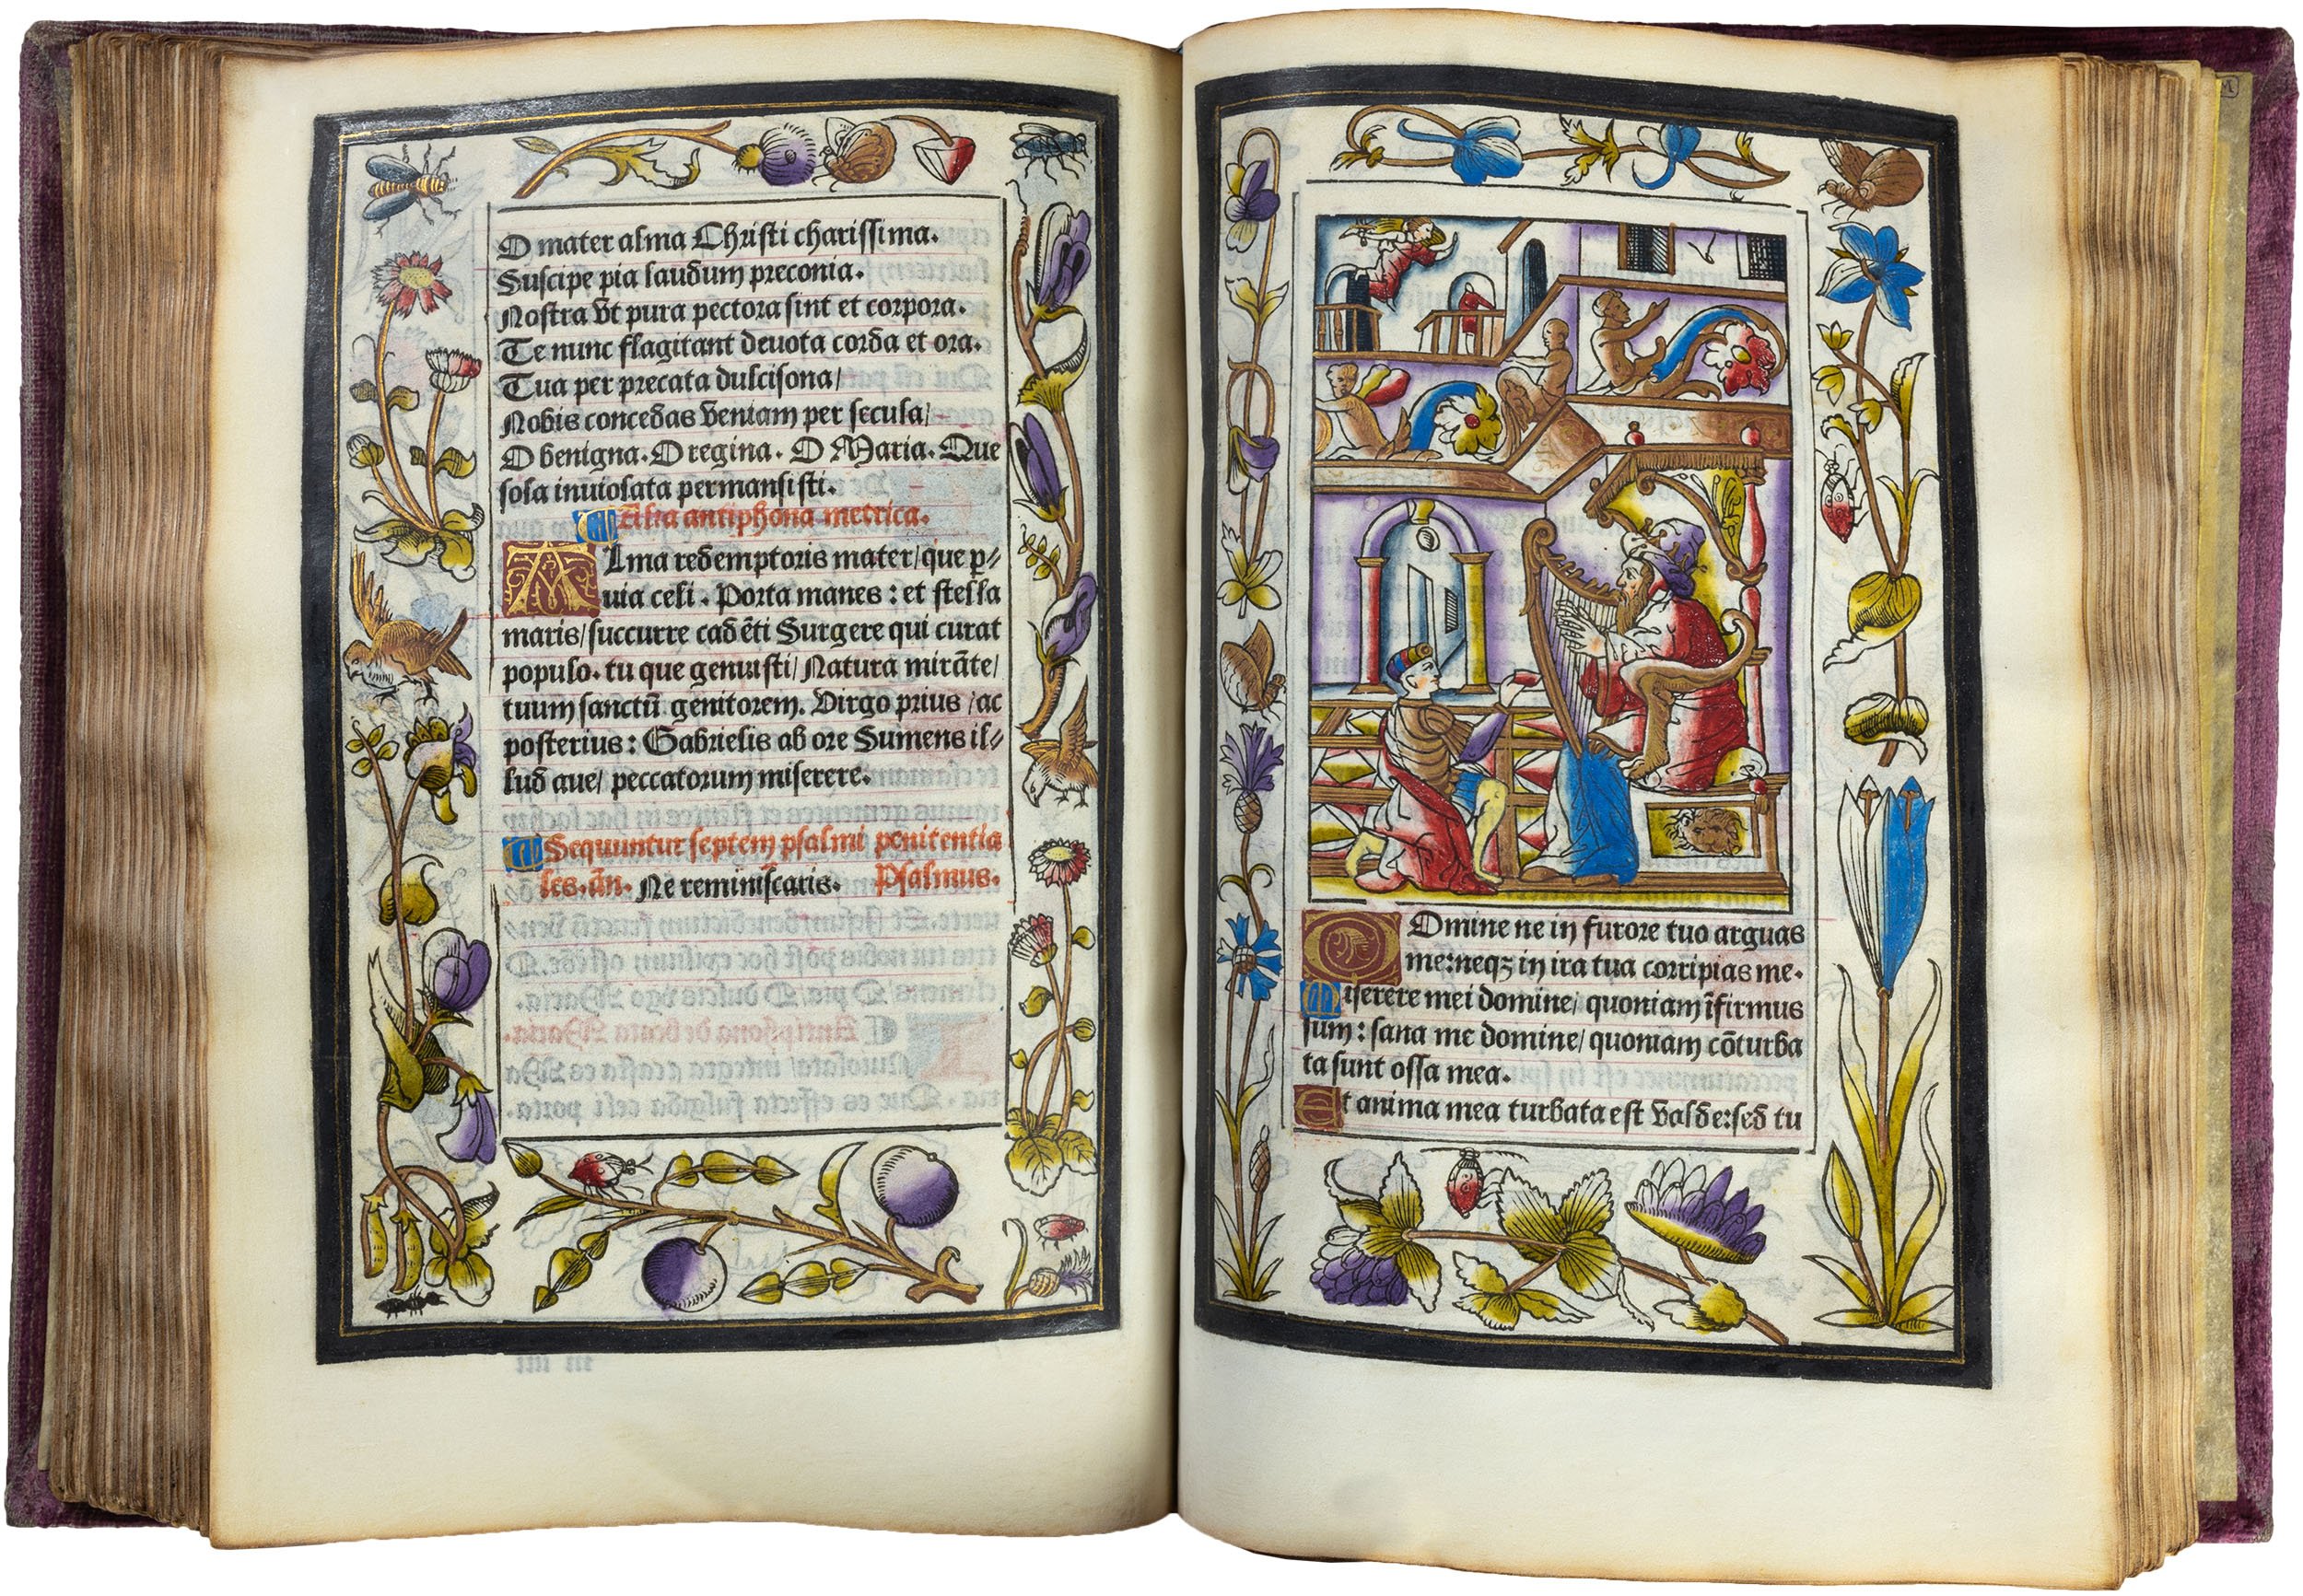 O mater alma Christi charissima.
Suscipe pia laudum preconia.
Nostra vt pura pectora sint et corpora.
Te nunc flagitant deuota corda et ora.
Tua per precata dulcisona/
Nobis concedas veniam per secula/
O benigna. O regina. O Maria. Que
sola inuiolata permansisti.
Alia antiphona metrica.
ALma redemptoris mater/que p⸗
uia celi. Porta manes: et stella
maris/succurre cadēti Surgere qui curat
populo. tu que genuisti/Natura mirāte/
tuum sanctū genitorem. Virgo prius/ac
posterius: Gabrielis ab ore Sumens il⸗
lud aue/ peccatorum miserere.
Sequuntur septem psalmi penitentia
les. añ. Ne reminiscaris. Psalmus.
DOmine ne in furore tuo arguas
me:neqꝫ in ira tua corripias me.
Miserere mei domine/ quoniam īfirmus
sum: sana me domine/ quoniam cōturba
ta sunt ossa mea.
Et anima mea turbata est valde:sed tu